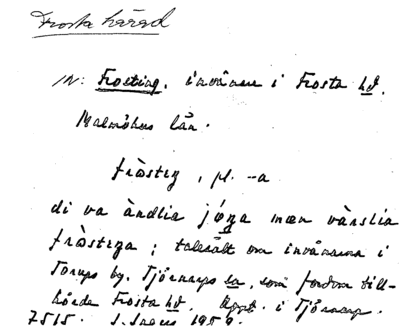 Frosta härad
IN: Frosting, invånare i Frosta hd.
Malmöhus län.
fràstiŋ, pl. -a
di va àndlia jøŋa mæn vànslia
fràstiŋa; talesätt om invånarna i
Torups by, Tjörnarps sn, som fordom till-
hörde Frosta hd. Uppt. i Tjörnarp.
7515. I. Ingers 1959.